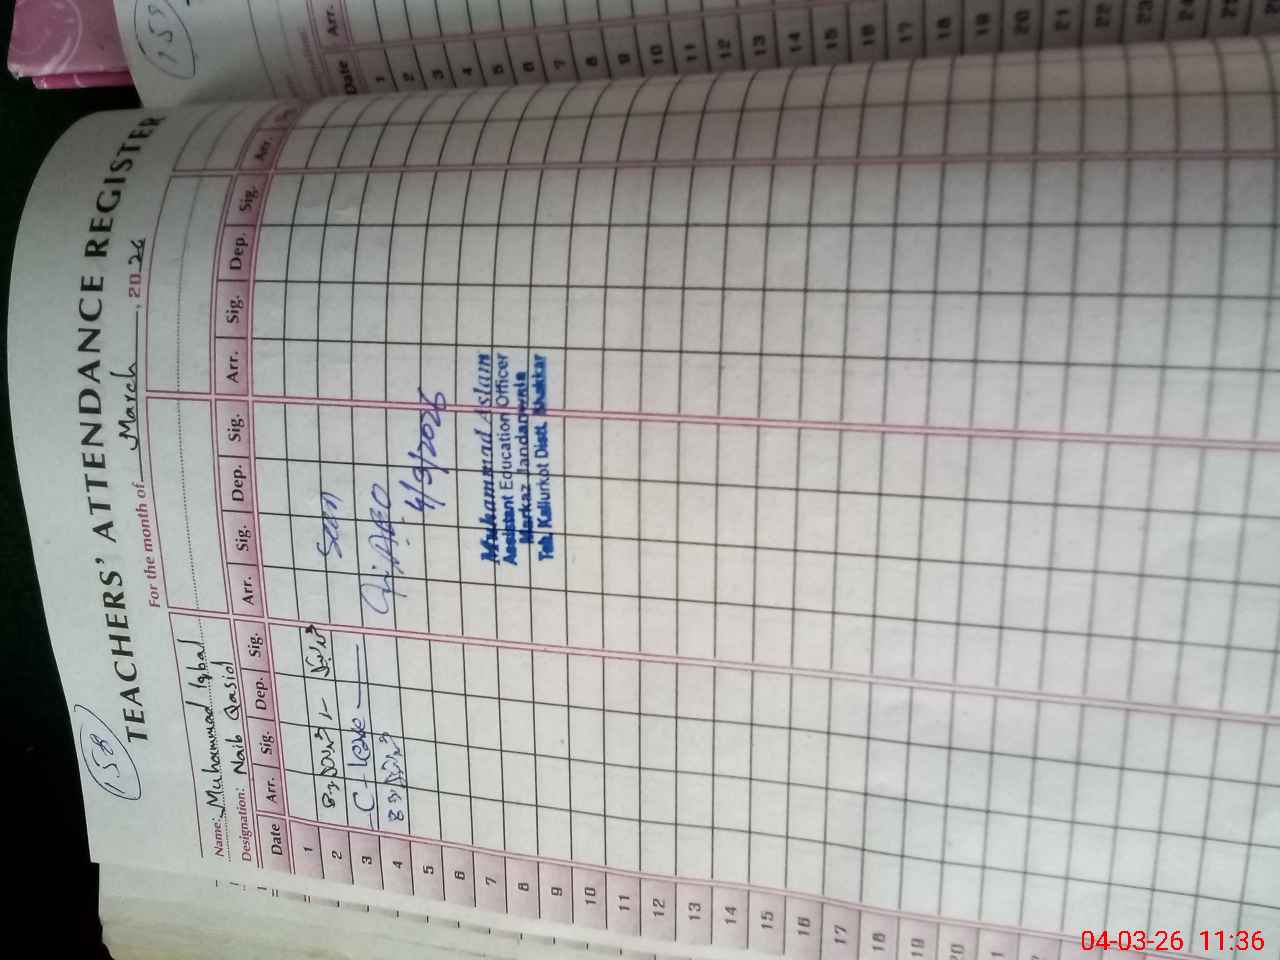 158
TEACHERS' ATTENDANCE REGISTER
For the month of March, 2026
Name: Muhammad Iqbal
Designation: Naib Qasid
Date Arr. Sig. Dep. Sig. Arr. Sig. Dep. Sig. Arr. Sig. Dep. Sig. Arr.
1
2
3 C-leave
4
5
6
7
8
9
10
11
12
13
14
15
16
17
18
19
20
Seen
AEO
4/3/2026
Muhammad Aslam
Assistant Education Officer
Markaz Jandanwala
Teh. Kallurkot Distt. Bhakkar
158
Date Arr.
1
2
3
4
5
6
7
8
9
10
11
12
13
14
15
16
17
18
19
20
21
22
23
24
25
04-03-26 11:36